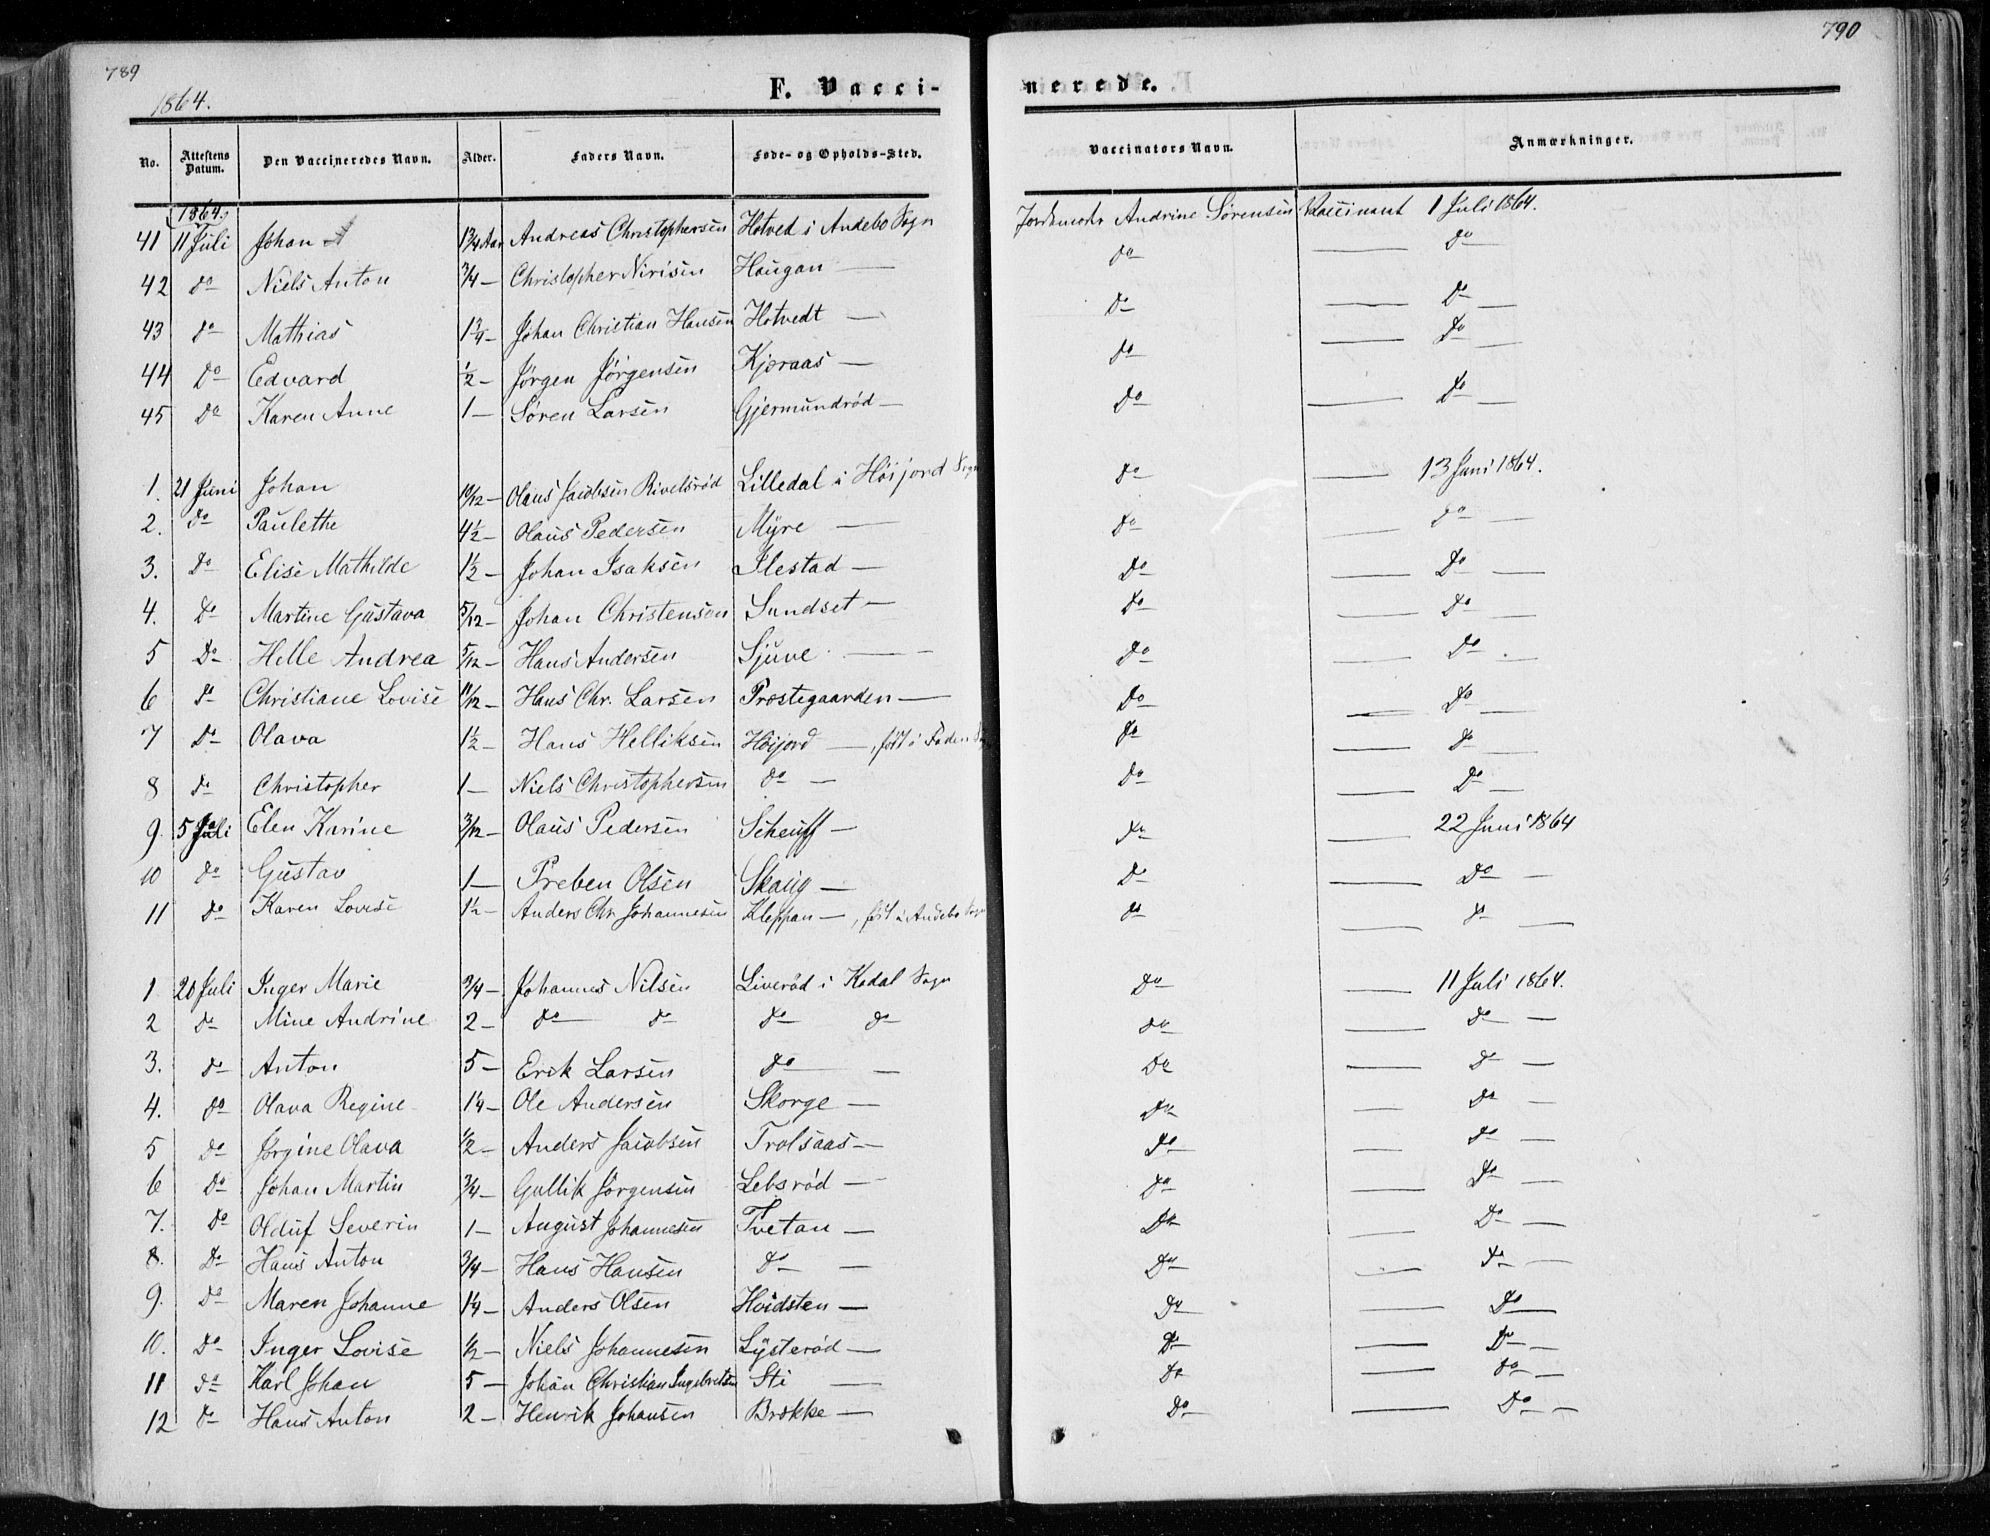 789
790
1864.
F. Vacci-
nerede.
No. Attestens Datum. Den Vaccineredes Navn. Alder. Faders Navn. Føde- og Opholds-Sted. Vaccinators Navn. Anmærkninger.
1864.
41 11 Juli Johan 1¾ Aar Andreas Christophersen Hotved i Andebo Sogn Jordemoder Andrine Sørensen Vaccineret 1 Juli 1864.
42 do Niels Anton ¾ — Christopher Haugan — do — do
43 do Mathias Johan Christian Hansen Hotvedt — do — do —
44 Do Edvard ½ — Jørgen Jørgensen Kjæraas — do — do —
45 Do Karen Anne 1 — Søren Larsen Gjermundrød — do — do —
1. 21 Juni Johan 10/12 — Olaus Jacobsen Rivelsrød Lilledal i Høijord Sogn do — 13 Juni 1864.
2. do Paulethe 4½ — Olaus Pedersen Myre — do — do —
3. do Elise Mathilde 1½ — Johan Isaksen Ilestad — do — do —
4. do Martine Gustava 5/12 — Johan Christensen Sundset — do — do —
5 Do Helle Andrea 5/12 — Hans Andersen Sjuve — do — do —
6 do Christiane Lovise 11/12 — Hans Chr. Larsen Præstegaarden — do — do —
7 Do Olava 1½ — Hans Helliksen Høijord —, født i do — do —
8 do Christopher 1 — Niels Christophersen do — do — do —
9. 5 Juli Elen Karine 3/12 — Olaus Pedersen — do — 22 Juni 1864
10 do Gustav 1 — Preben Olsen Skaug — do — Do —
11 do Karen Lovise 1½ — Anders Chr. Johannesen Kleppan —, født i Andebo Sogn do — do —
1 20 Juli Inger Marie ¾ — Johannes Nilsen Liverød i Kodal Sogn do — 11 Juli 1864.
2 do Mine Andrine 2 — do do do do do — do —
3. do Anton 5 — Erik Larsen do — do — do —
4. do Olava Regine 1¼ — Ole Andersen Skorge — do — do —
5 do Jørgine Olava ½ — Anders Jacobsen Trolsaas — do — do —
6 Do Johan Martin ¾ — Gullik Jørgensen Lebsrød — do — do —
7. Do Oluf Severin 1 — August Johannesen Tvetan — do — Do —
8. Do Hans Anton ¾ — Hans Hansen do — do — do —
9. Do Maren Johanne 1¼ — Anders Olsen Hvidsten — do — do —
10. do Inger Lovise ½ — Niels Johannesen Lysterød — do — do —
11 do Karl Johan 5 — Johan Christian Ingebretsen Sti — do — do —
12 do Hans Anton 2 — Henrik Johansen Brække — do — Do —